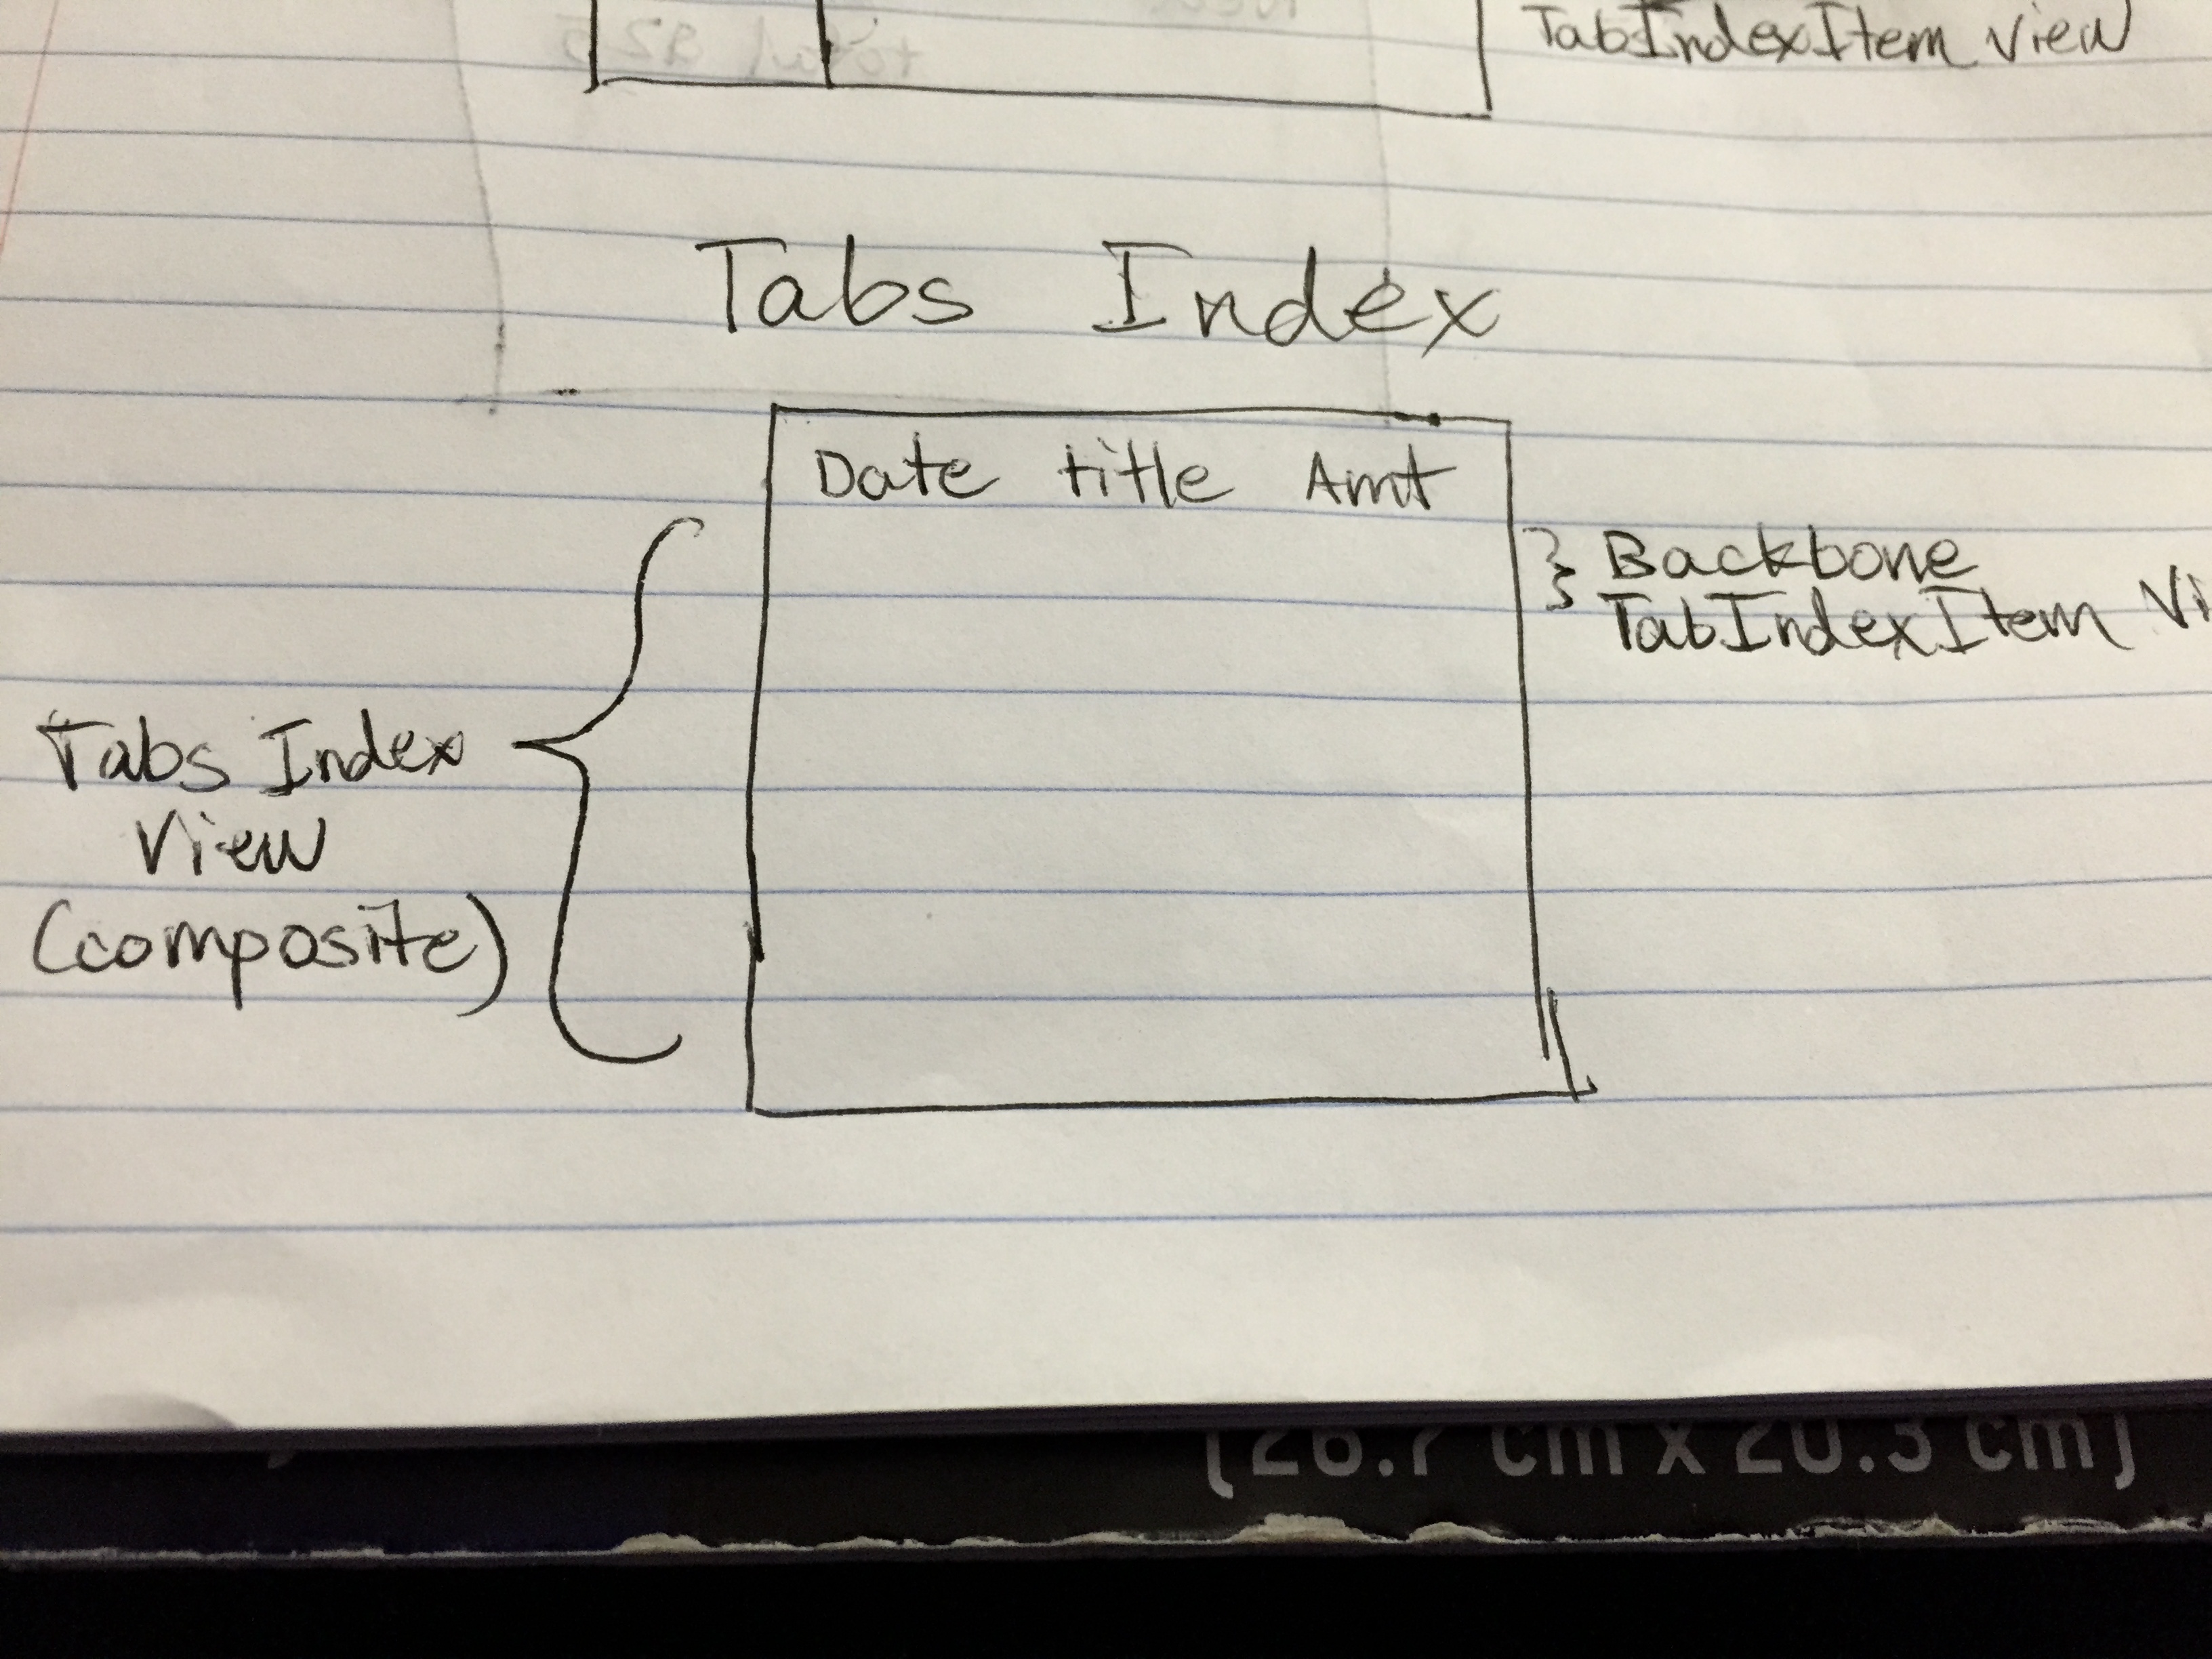 TabIndexItem view
Tabs Index
Date title Amt
Backbone
TabIndexItem Vi
Tabs Index
View
(composite)
(26.7 cm x 20.3 cm)